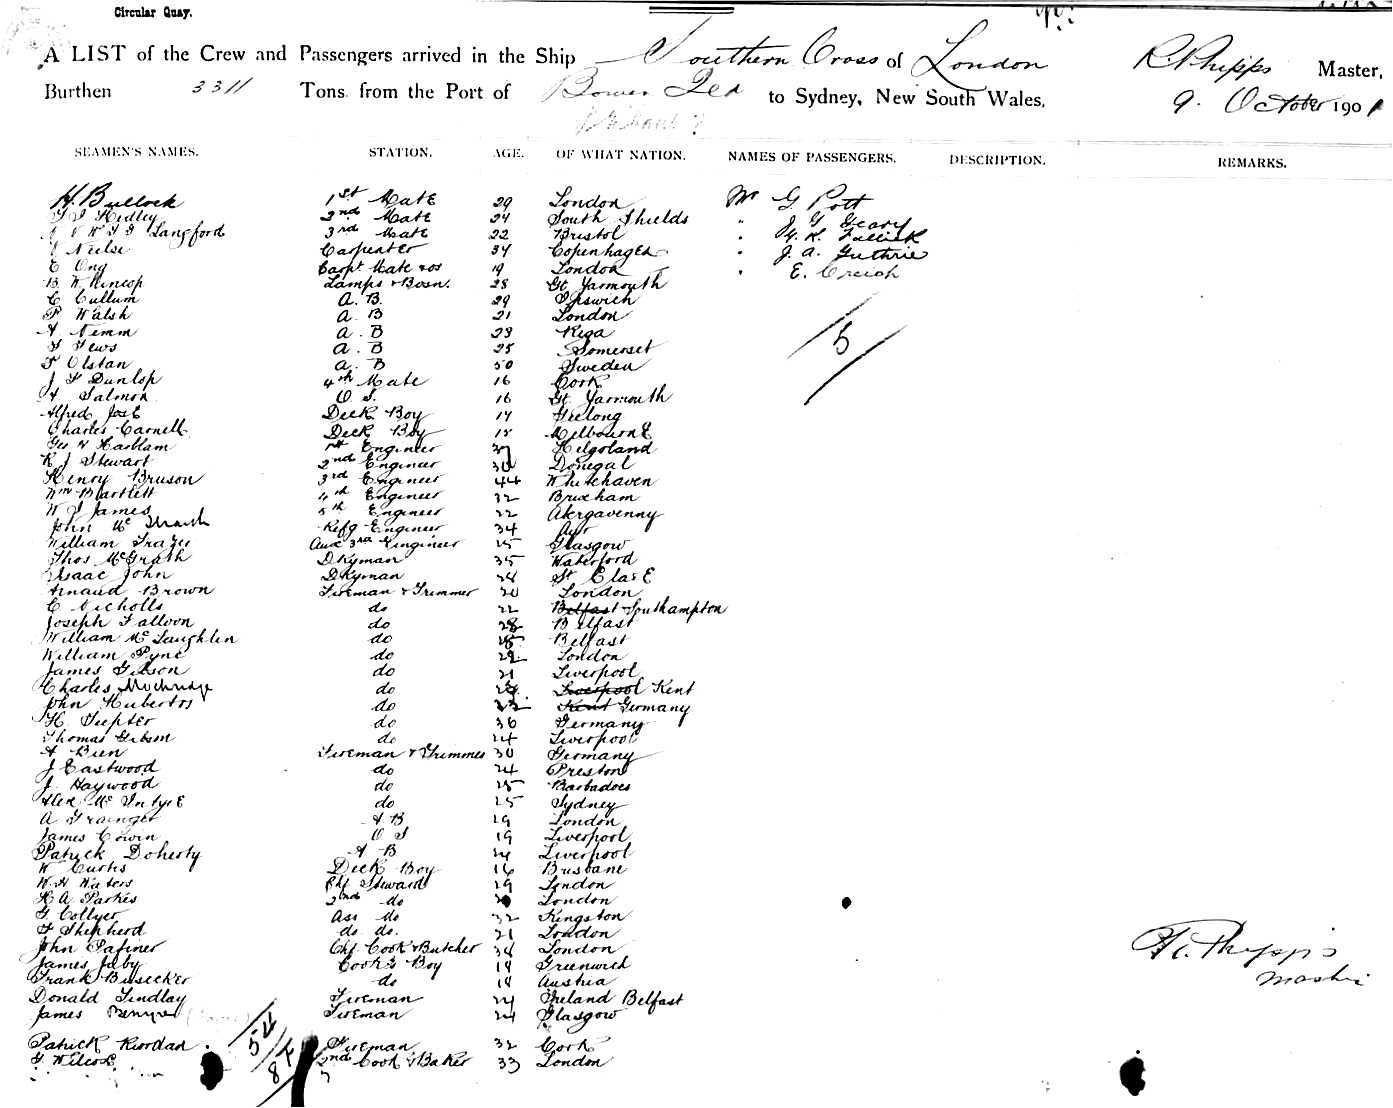 Circular Quay.
A LIST of the Crew and Passengers arrived in the Ship Southern Cross of London R. Phipps Master,
Burthen 3311 Tons from the Port of Bowen Qld to Sydney, New South Wales, 9. October 1901
SEAMEN'S NAMES. STATION. AGE. OF WHAT NATION. NAMES OF PASSENGERS. DESCRIPTION. REMARKS.
H. Bullock 1st Mate 29 London Mr G Pott
Hedley 2nd Mate 24 South Shields " J G Geary
Langford 3rd Mate 22 Bristol "
Nielse Carpenter 34 Copenhagen " J. A. Guthrie
E Ong Carpt Mate & os 19 London " E. Creigh
B. W. Lamps & Bosn. 28 Gt Yarmouth
C Cullum A. B. 29 Ipswich
P Walsh A. B 21 London
A Nemm A. B 23 Riga
Tews A. B 25 Somerset
Olstan A. B 50 Sweden
J F Dunlop 4th Mate 16 Cork
A Salmon O S. 16 Gt Yarmouth
Alfred JosE Deck Boy 17 Geelong
Charles Carnell Deck Boy 18 MelbournE
Geo H Harblam 1st Engineer Helgoland
R J Stewart 2nd Engineer Donegal
Henry Bruson 3rd Engineer 44 Whitehaven
Wm Bartlett 4th Engineer 32 Brixham
W J James 5th Engineer 22 Abergavenny
John Mc Refg Engineer 34 Ayr
William Frazer Aux 3rd Engineer 25 Glasgow
Thos McGrath Dkyman 35 Waterford
Isaac John Dkyman 28 St
Arnaud Brown Fireman & Trimmer 20 London
C Nicholls do 22 Belfast Southampton
Joseph Falloon do 28 Belfast
William McLaughlin do Belfast
William Pyne do 22 London
James Gibson do 21 Liverpool
Charles do Liverpool Kent
John Hubertos do Kent Germany
H. do 36 Germany
Thomas Gibson do 24 Liverpool
A Bien Fireman & Trimmer 30 Germany
J Eastwood do 24 Preston
J. Haywood do 25 Barbadoes
Alex Mc IntyrE do 25 Sydney
A Grainger A B 19 London
James Cowin O S 19 Liverpool
Patrick Doherty A B 24 Liverpool
W Curtis Deck Boy 16 Brisbane
W H Waters Chf Steward 29 London
H A Parkes 2nd do London
G Collyer Ass do 32 Kingston
F Shepherd do do. 21 London
John Pafiner Chf Cook & Butcher 34 London
James Jaby Cook's Boy 18 Greenwich
Frank Busecker do 18 Austria
Donald Findlay Fireman 24 Ireland Belfast
James Fireman 24 Glasgow
Patrick Riordan Fireman 32 Cork
G Wilcox 2nd Cook & Baker 33 London
5
54
87
Phipps
Master